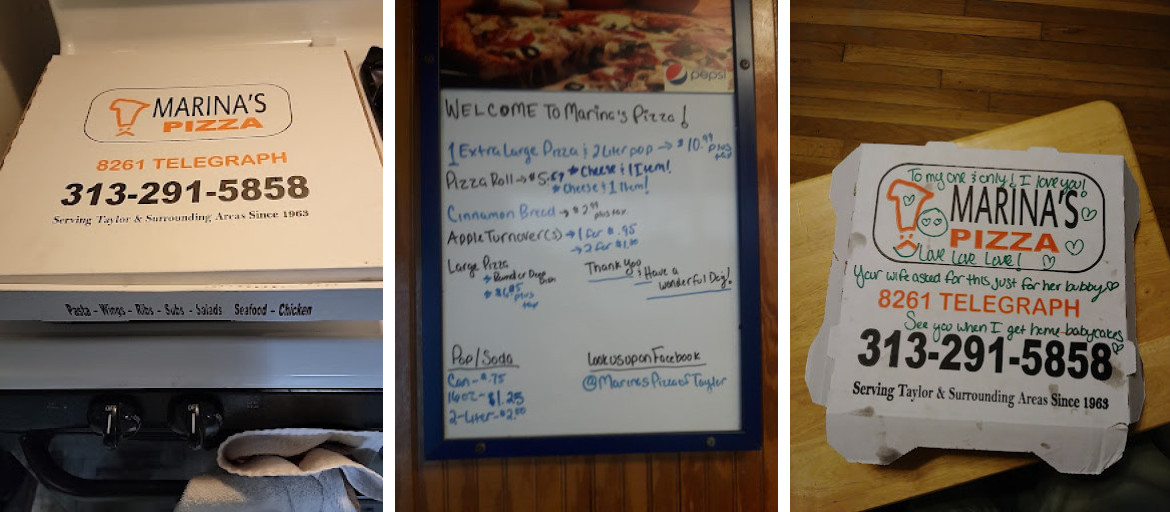 MARINA'S
PIZZA
8261 TELEGRAPH
313-291-5858
Serving Taylor & Surrounding Areas Since 1963
Pasta - Wings - Ribs - Subs - Salads Seafood - Chicken
pepsi
WELCOME TO Marina's Pizza!
1 Extra Large Pizza & 2 Liter pop → $10.99 plus tax
Pizza Roll → $5.69 * Cheese & 1 Item!
* Cheese & 1 Item!
Cinnamon Bread → $2.99 plus tax
Apple Turnover(s) → 1 for $.95
→ 2 for
Large Pizza
→ Round or Deep Dish
plus tax
Thank you
& Have a
wonderful Day!
Pop/Soda
Can - $.75
16oz - $1.25
2-Liter - $2.00
Look us up on Facebook
@MarinasPizzaofTaylor
To my one & only! I love you!
MARINA'S
PIZZA
Love Love Love!
Your wife asked for this just for her hubby
8261 TELEGRAPH
See you when I get home babycakes
313-291-5858
Serving Taylor & Surrounding Areas Since 1963